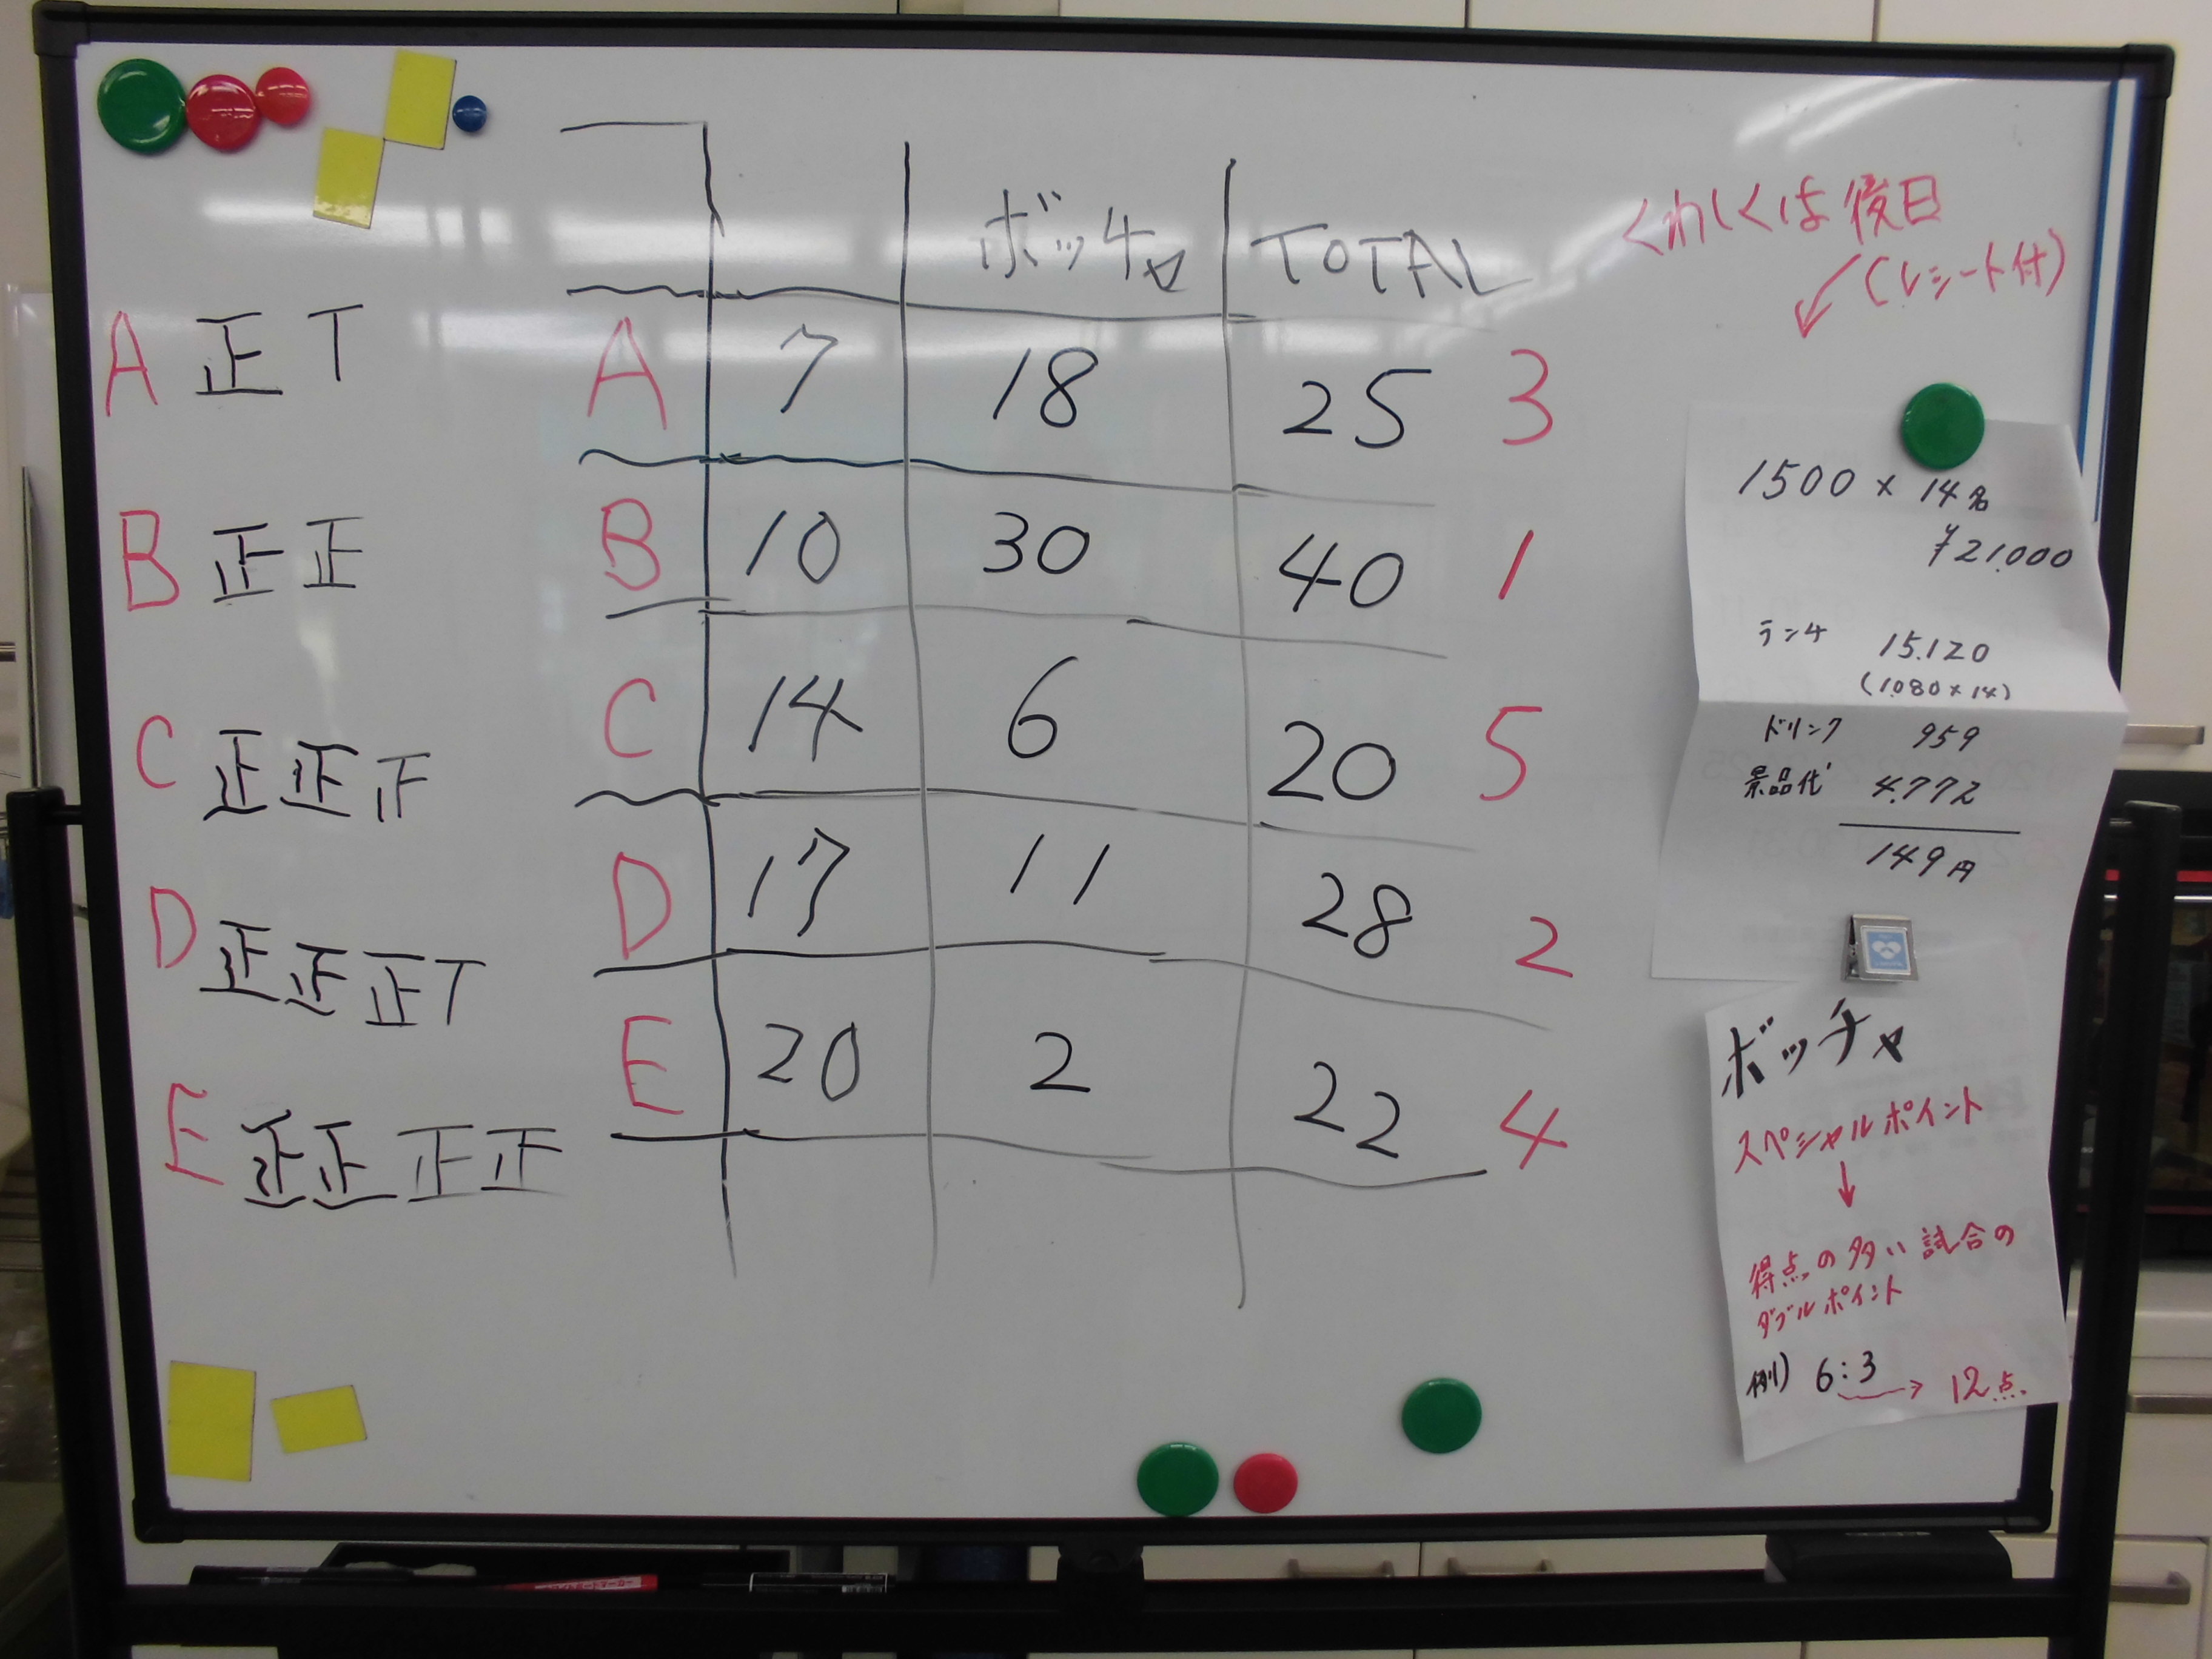 ボッチャ TOTAL
A 正T
B 正正
C 正正正
D 正正正T
E 正正正正
A 7 18 25 3
B 10 30 40 1
C 14 6 20 5
D 17 11 28 2
E 20 2 22 4
くわしくは後日
(レシート付)
1500 × 14名
¥21.000
ランチ 15.120
(1.080×14)
ドリンク 959
景品代 4.772
149円
ボッチャ
スペシャルポイント
↓
得点の多い試合の
ダブルポイント
例) 6:3 → 12点